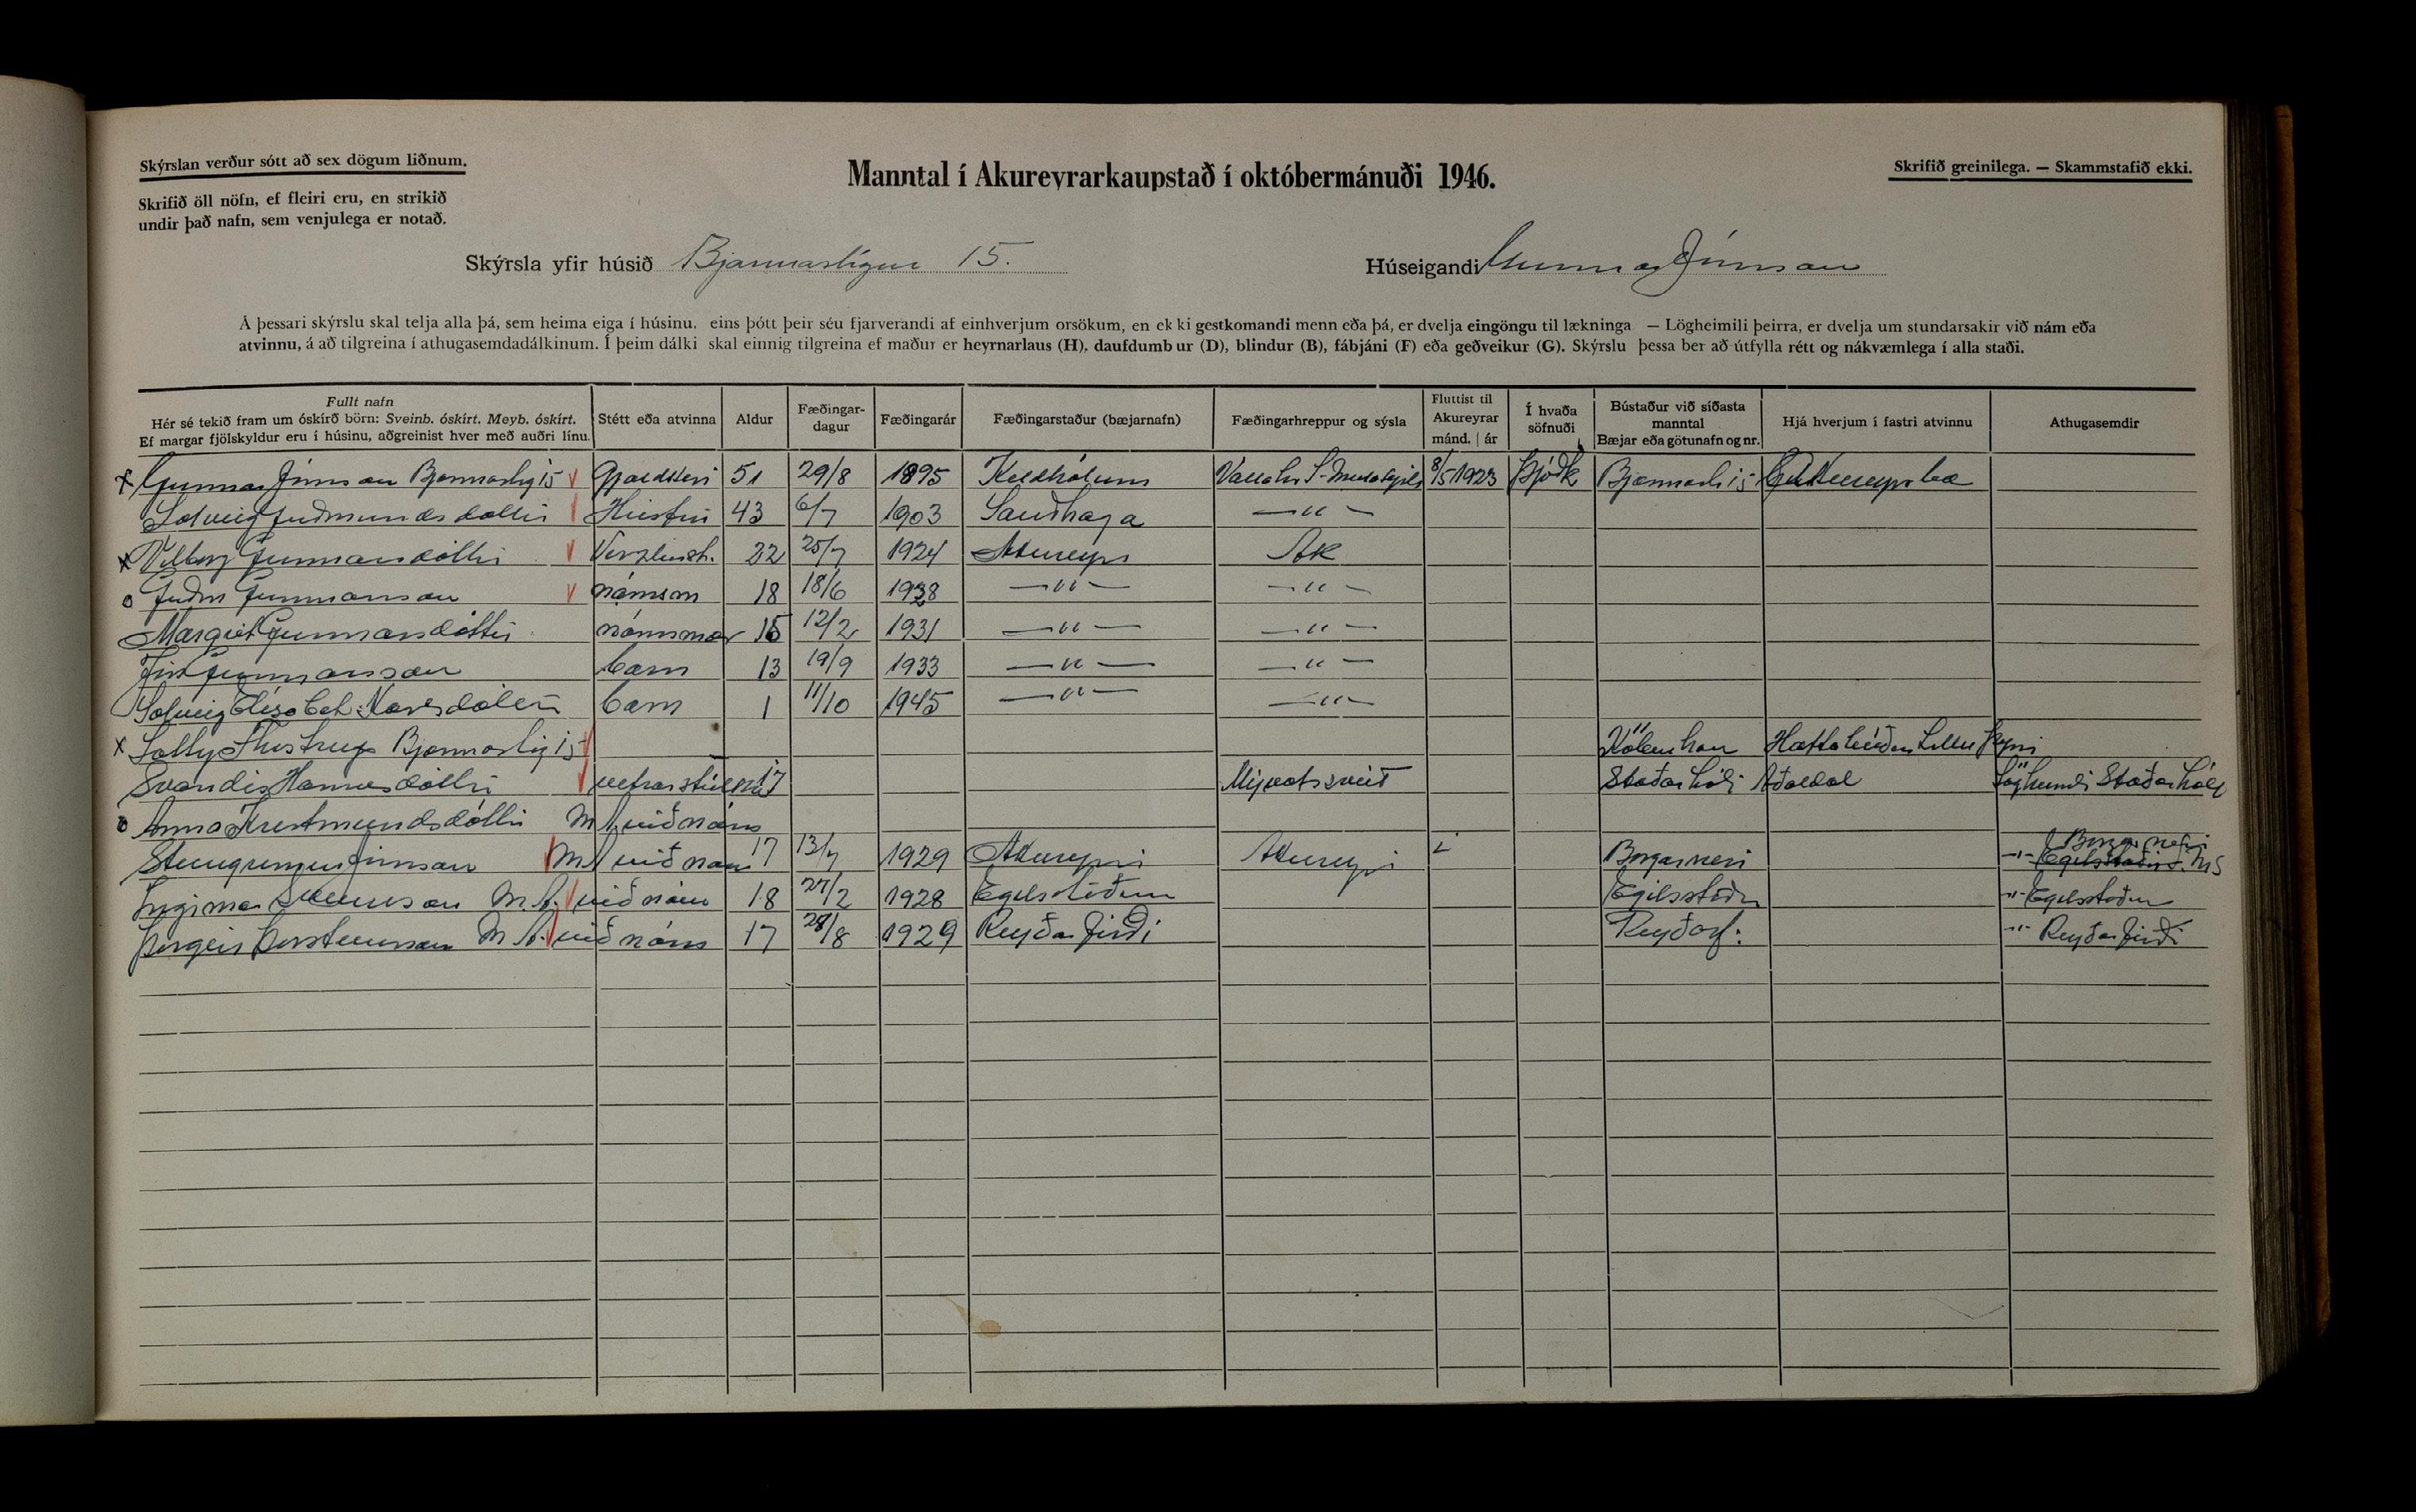 Skýrslan verður sótt að sex dögum liðnum.
Skrifið öll nöfn, ef fleiri eru, en strikið
undir það nafn, sem venjulega er notað.
Manntal í Akureyrarkaupstað í októbermánuði 1946.
Skrifið greinilega. — Skammstafið ekki.
Skýrsla yfir húsið Bjarmastígur 15.
Húseigandi Gunnar Jónsson
Á þessari skýrslu skal telja alla þá, sem heima eiga í húsinu, eins þótt þeir séu fjarverandi af einhverjum orsökum, en ekki gestkomandi menn eða þá, er dvelja eingöngu til lækninga — Lögheimili þeirra, er dvelja um stundarsakir við nám eða
atvinnu, á að tilgreina í athugasemdadálkinum. Í þeim dálki skal einnig tilgreina ef maður er heyrnarlaus (H), daufdumbur (D), blindur (B), fábjáni (F) eða geðveikur (G). Skýrslu þessa ber að útfylla rétt og nákvæmlega í alla staði.
Fullt nafn Hér sé tekið fram um óskírð börn: Sveinb. óskírt. Meyb. óskírt. Ef margar fjölskyldur eru í húsinu, aðgreinist hver með auðri línu. Stétt eða atvinna Aldur Fæðingar-dagur Fæðingarár Fæðingarstaður (bæjarnafn) Fæðingarhreppur og sýsla Fluttist til Akureyrar mánd. | ár Í hvaða söfnuði Bústaður við síðasta manntal Bæjar eða götunafn og nr. Hjá hverjum í fastri atvinnu Athugasemdir
x Gunnar Jónsson Bjarmastíg 15 v Gjaldkeri 51 29/8 1895 Keldhólum 8/5 1923 Þjóðk
Solveig Guðmundsdóttir Húsfrú 43 6/7 1903 Sandhaga —"—
x Vilborg Gunnarsdóttir v Verzlunst. 22 25/7 1924 Akureyri Ak
o Gunnarsson v námsm 18 18/6 1928 —"— —"—
Margrét Gunnarsdóttir námsmær 15 12/2 1931 —"— —"—
Jón Gunnarsson barn 13 19/9 1933 —"— —"—
Solveig Elísabet barn 1 11/10 1945 —"— —"—
x Thustrup Bjarmastíg 15 v
Svandís Hannesdóttir v vetrarstúlka 17 Mývatssveit Staðarhóli Aðaldal Lögheimili Staðarhóll
o Anna M A við nám
Steingrímur Jónsson M A við nám 17 13/7 1929 Akureyri Akureyri Borgarnesi —"— Borgarnesi
Ingimar M. A. v við nám 18 27/2 1928 Egilsstöðum Egilsstöðum —"— Egilsstöðum
Þorgeir Þorsteinsson M A. v við nám 17 28/8 1929 Reyðarfirði Reyðarf: —"— Reyðarfirði